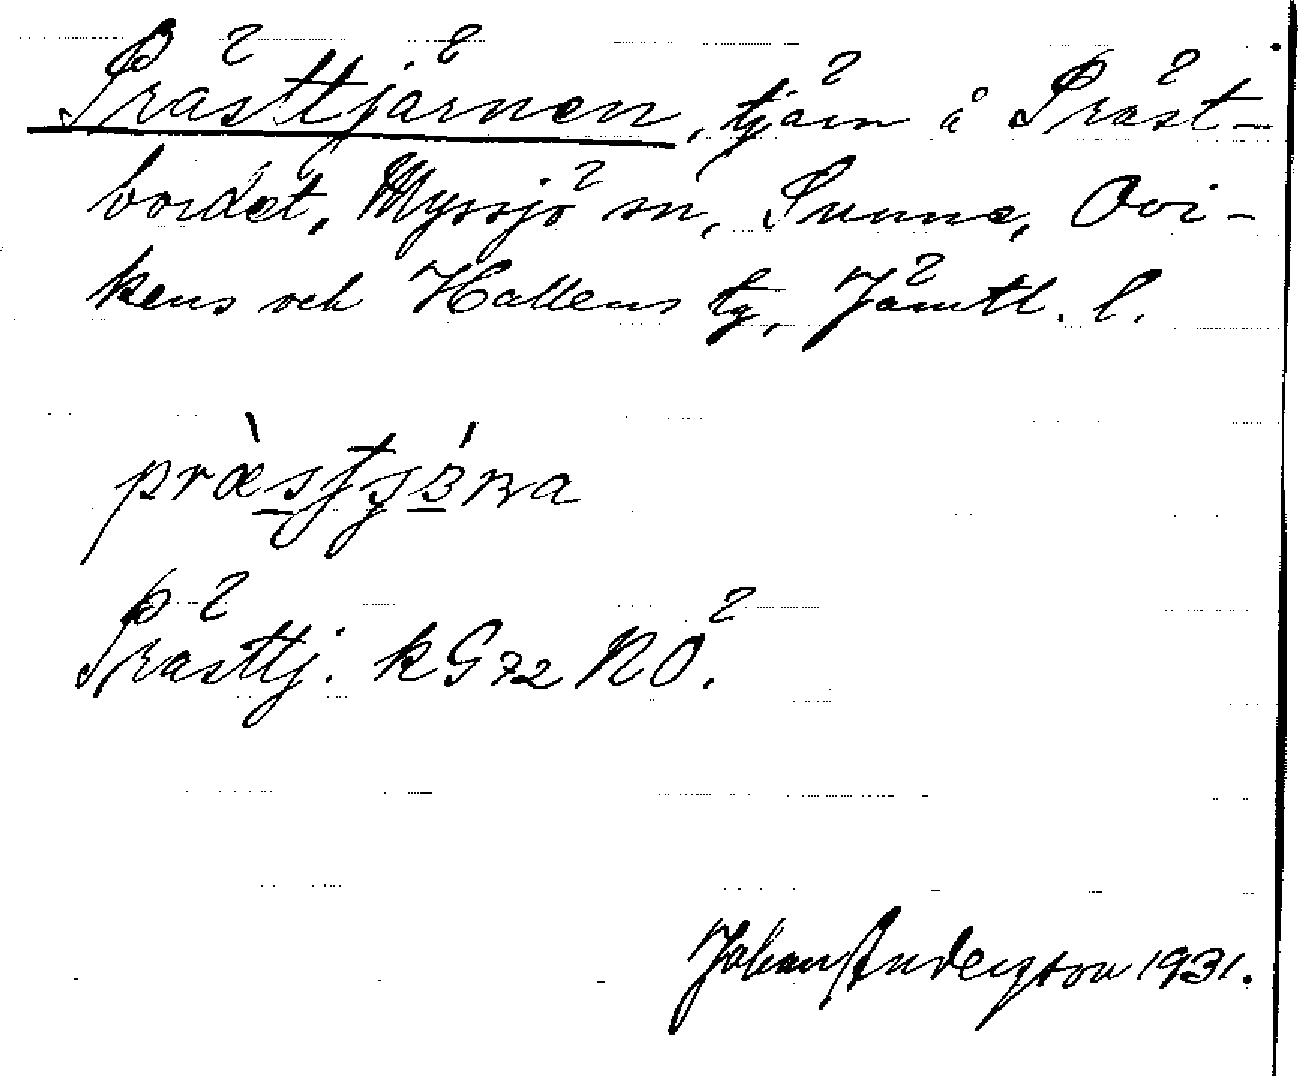 Prästtjärnen, tjärn å Präst-
bordet, Myssjö sn, Sunne, Ovi-
kens och Hallens tg, Jämtl. l.
Prästtj. kG72 NÖ.
Johan Anderson 1931.